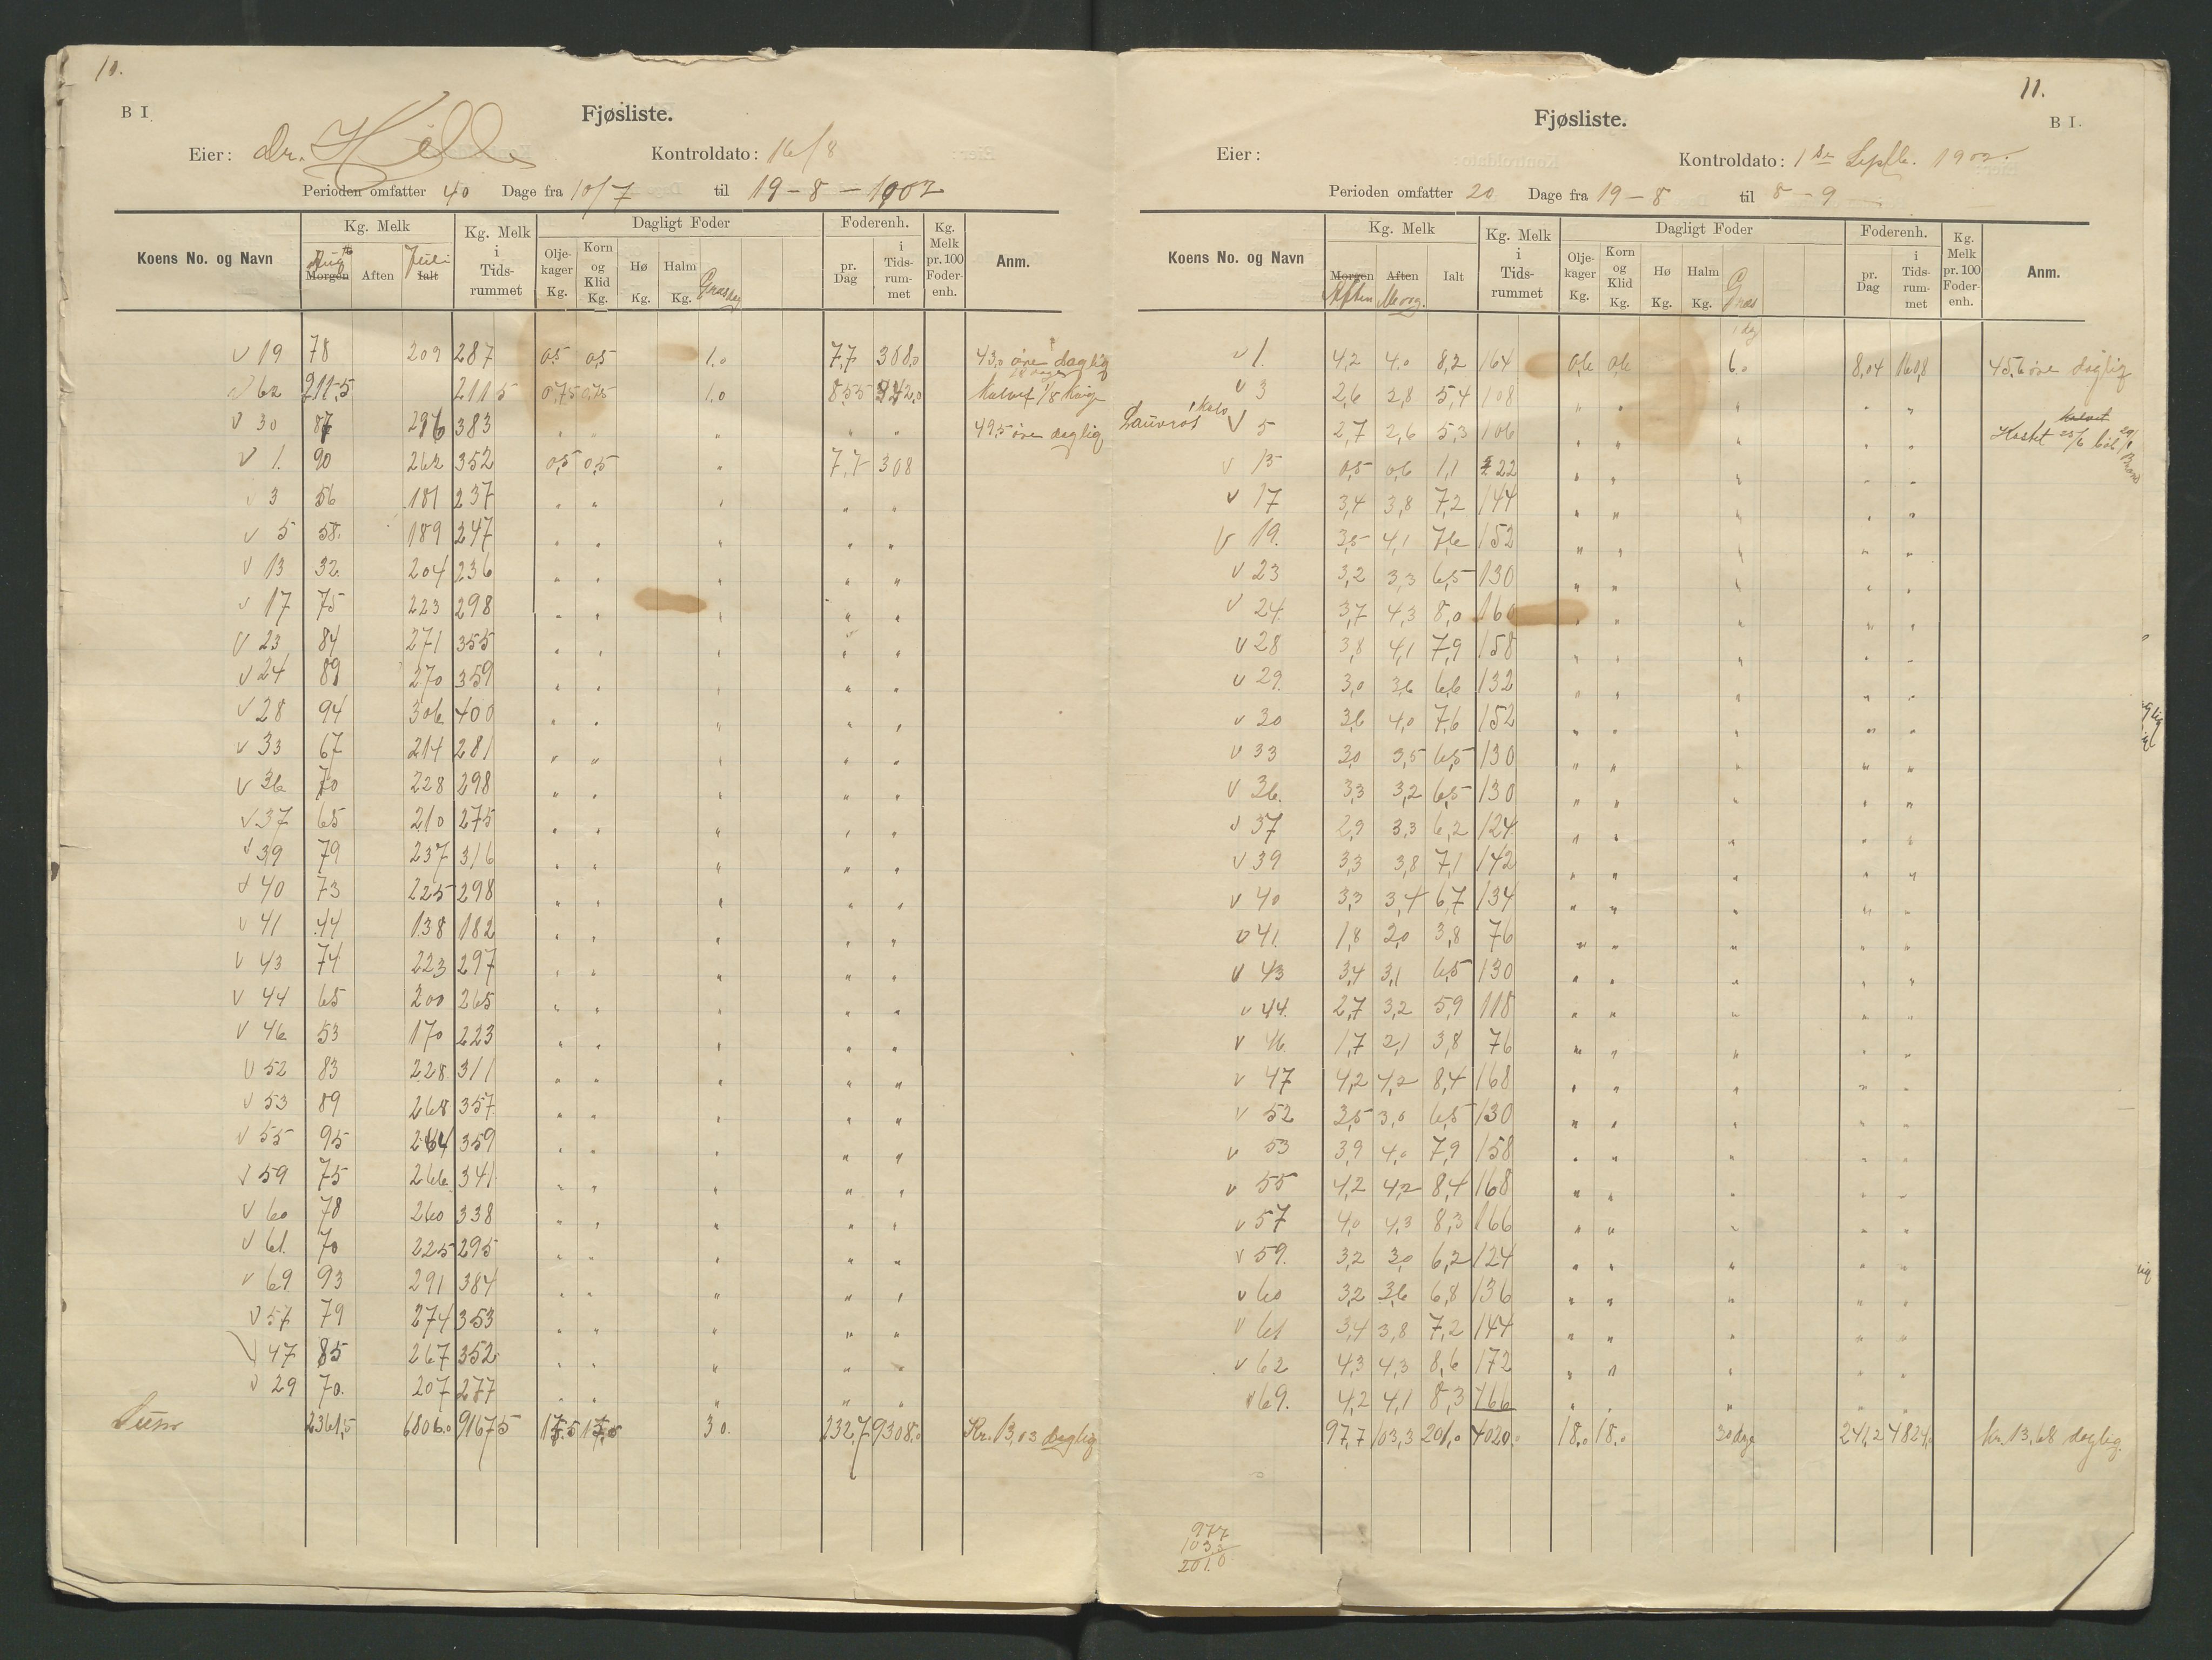 10.
B I
Fjøsliste.
Eier: Dr. Hille
Kontroldato: 16/8
Perioden omfatter 40 Dage fra 10/7 til 19-8-1902
Koens No. og Navn | Kg. Melk | Kg. Melk i Tidsrummet | Dagligt Foder | Foderenh. | Kg. Melk pr. 100 Foderenh. | Anm.
Morgen Aften Ialt | Oljekager Kg. | Korn og Klid Kg. | Hø Kg. | Halm Kg. | pr. Dag | i Tidsrummet
Aug Juli Græsdag
v 19 78 209 287 0,5 0,5 1.0 7,7 308,0 43,0 øre daglig
v 62 211,5 211,5 0,75 0,75 1.0 8,55 242,0 Kalvet 1/8 Kvige
v 30 87 296 383 " " " " " 49,5 øre daglig
v 1. 90 262 352 0,5 0,5 " 7,7 308
v 3 56 181 237 " " " " "
v 5 58. 189 247 " " " " "
v 13 32. 204 236 " " " " "
v 17 75 223 298 " " " " "
v 23 84 271 355 " " " " "
v 24 89 270 359 " " " " "
v 28 94 306 400 " " " " "
v 33 67 214 281 " " " " "
v 36 70 228 298 " " " " "
v 37 65 210 275 " " " " "
v 39 79 237 316 " " " " "
v 40 73 225 298 " " " " "
v 41 44 138 182 " " " " "
v 43 74 223 297 " " " " "
v 44 65 200 265 " " " " "
v 46 53 170 223 " " " " "
v 52 83 228 311 " " " " "
v 53 89 268 357 " " " " "
v 55 95 264 359 " " " " "
v 59 75 266 341 " " " " "
v 60 78 260 338 " " " " "
v 61. 70 225 295 " " " " "
v 69 93 291 384 " " " " "
v 57 79 274 353 " " " " "
v 47 85 267 352 " " " " "
v 29 70. 207 277 " " " " "
Sum 2361,5 6806.0 9167,5 30. 232,7 9308,0 Kr. 13,03 daglig
11.
B I.
Fjøsliste.
Eier:
Kontroldato: 1ste Septb. 1902.
Perioden omfatter 20 Dage fra 19-8 til 8-9
Koens No. og Navn | Kg. Melk | Kg. Melk i Tidsrummet | Dagligt Foder | Foderenh. | Kg. Melk pr. 100 Foderenh. | Anm.
Morgen Aften Ialt | Oljekager Kg. | Korn og Klid Kg. | Hø Kg. | Halm Kg. | pr. Dag | i Tidsrummet
Aften Morg. Græs
1 dag
v 1. 4,2 4.0 8,2 164 0,6 0,6 6.0 8,04 160,8 45,6 øre daglig
v 3 2,6 2,8 5,4 108 " " " " "
v 5 2,7 2,6 5,3 106 " " " " " Kastet 25/6
v 13 0,5 0,6 1,1 22 " " " " "
v 17 3,4 3,8 7,2 144 " " " " "
v 19. 3,5 4,1 7,6 152 " " " " "
v 23 3,2 3,3 6,5 130 " " " " "
v 24. 3,7 4,3 8,0 160 " " " " "
v 28 3,8 4,1 7,9 158 " " " " "
v 29. 3,0 3,6 6,6 132 " " " " "
v 30 3,6 4,0 7,6 152 " " " " "
v 33 3,0 3,5 6,5 130 " " " " "
v 36. 3,3 3,2 6,5 130 " " " " "
v 37 2,9 3,3 6,2 124 " " " " "
v 39 3,3 3,8 7,1 142 " " " " "
v 40 3,3 3,4 6,7 134 " " " " "
v 41. 1,8 2,0 3,8 76 " " " " "
v 43 3,4 3,1 6,5 130 " " " " "
v 44. 2,7 3,2 5,9 118 " " " " "
v 46. 1,7 2,1 3,8 76 " " " " "
v 47 4,2 4,2 8,4 168 " " " " "
v 52 3,5 3,0 6,5 130 " " " " "
v 53 3,9 4,0 7,9 158 " " " " "
v 55 4,2 4,2 8,4 168 " " " " "
v 57 4,0 4,3 8,3 166 " " " " "
v 59. 3,2 3,0 6,2 124 " " " " "
v 60 3,2 3,6 6,8 136 " " " " "
v 61 3,4 3,8 7,2 144 " " " " "
v 62 4,3 4,3 8,6 172 " " " " "
v 69. 4,2 4,1 8,3 166 " " " " "
97,7 103,3 201,0 4020. 18,0 18,0 30 dage 241,2 4824,0 kr 13,68 daglig.
97,7
103,3
201.0